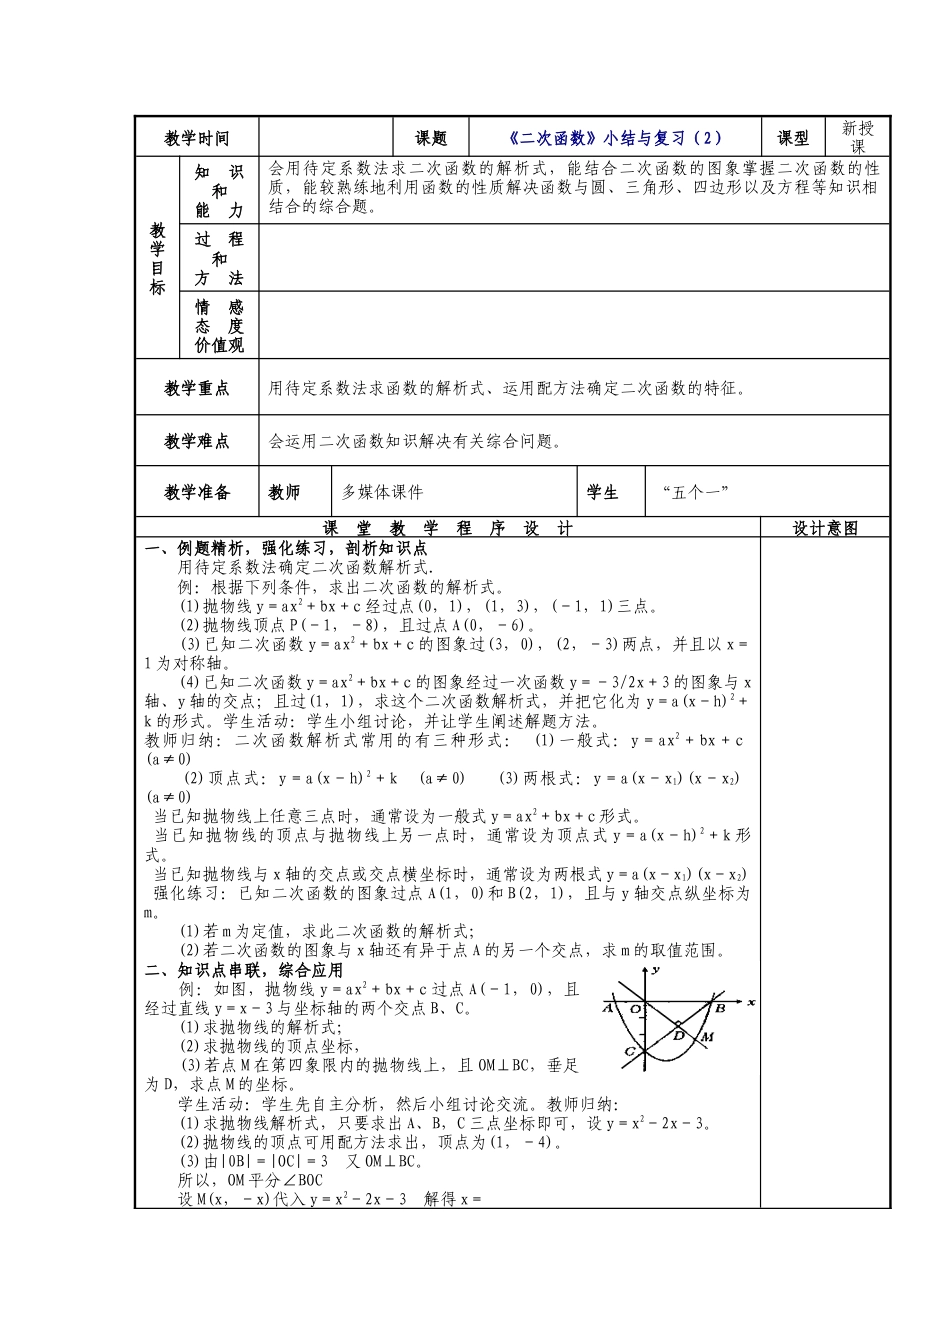 教学时间 课题 《二次函数》小结与复习(2) 课型 新授课
教学目标
知 识
和
能 力
会用待定系数法求二次函数的解析式，能结合二次函数的图象掌握二次函数的性
质，能较熟练地利用函数的性质解决函数与圆、三角形、四边形以及方程等知识相
结合的综合题。
过 程
和
方 法
情 感
态 度
价值观
教学重点 用待定系数法求函数的解析式、运用配方法确定二次函数的特征。
教学难点 会运用二次函数知识解决有关综合问题。
教学准备 教师 多媒体课件 学生 “五个一”
课 堂 教 学 程 序 设 计 设计意图
一、例题精析，强化练习，剖析知识点
用待定系数法确定二次函数解析式.
例：根据下列条件，求出二次函数的解析式。
(1)抛物线y＝ax²＋bx＋c经过点(0，1)，(1，3)，(－1，1)三点。
(2)抛物线顶点P(－1，－8)，且过点A(0，－6)。
(3)已知二次函数y＝ax²＋bx＋c的图象过(3，0)，(2，－3)两点，并且以x＝
1为对称轴。
(4)已知二次函数y＝ax²＋bx＋c的图象经过一次函数y＝－3/2x＋3的图象与x
轴、y轴的交点；且过(1，1)，求这个二次函数解析式，并把它化为y＝a(x－h)²＋
k的形式。学生活动：学生小组讨论，并让学生阐述解题方法。
教师归纳：二次函数解析式常用的有三种形式： (1)一般式：y＝ax²＋bx＋c
(a≠0)
(2)顶点式：y＝a(x－h)²＋k (a≠0) (3)两根式：y＝a(x－x₁)(x－x₂)
(a≠0)
当已知抛物线上任意三点时，通常设为一般式y＝ax²＋bx＋c形式。
当已知抛物线的顶点与抛物线上另一点时，通常设为顶点式y＝a(x－h)²＋k形
式。
当已知抛物线与x轴的交点或交点横坐标时，通常设为两根式y＝a(x－x₁)(x－x₂)
强化练习：已知二次函数的图象过点A(1，0)和B(2，1)，且与y轴交点纵坐标为
m。
(1)若m为定值，求此二次函数的解析式；
(2)若二次函数的图象与x轴还有异于点A的另一个交点，求m的取值范围。
二、知识点串联，综合应用
例：如图，抛物线y＝ax²＋bx＋c过点A(－1，0)，且
经过直线y＝x－3与坐标轴的两个交点B、C。
(1)求抛物线的解析式；
(2)求抛物线的顶点坐标，
(3)若点M在第四象限内的抛物线上，且OM⊥BC，垂足
为D，求点M的坐标。
y
A O B x
D M
C
学生活动：学生先自主分析，然后小组讨论交流。教师归纳：
(1)求抛物线解析式，只要求出A、B，C三点坐标即可，设y＝x²－2x－3。
(2)抛物线的顶点可用配方法求出，顶点为(1，－4)。
(3)由|0B|＝|OC|＝3 又OM⊥BC。
所以，OM平分∠BOC
设M(x，－x)代入y＝x²－2x－3 解得x＝